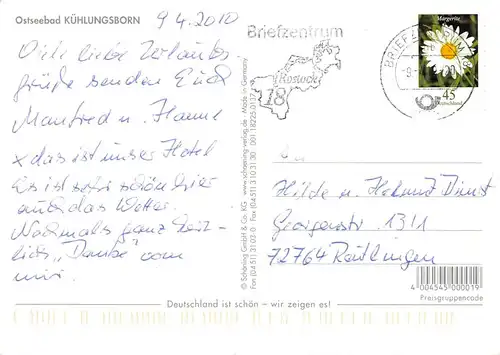 Ostseebad KÜHLUNGSBORN
9 4.2010
Viele liebe Urlaubs
grüße senden Euch
Manfred u. Hanne
x das ist unser Hotel
Es ist sehr schön hier
auch das Wetter.
Nochmals ganz herz-
lich "Danke" von
mir.
© Schöning GmbH & Co. KG · www.schoening-verlag.de · Made in Germany
Fon (04 51) 31 03-0 · Fax (04 51) 3 10 31 30
Briefzentrum
Rostock
18
BRIEFZENTRUM
Margerite
45
Deutschland
An
Hilde u. Helmut Dinst
Georgenstr. 13/1
72764 Reutlingen
4 004545 000019
Preisgruppencode
Deutschland ist schön – wir zeigen es!